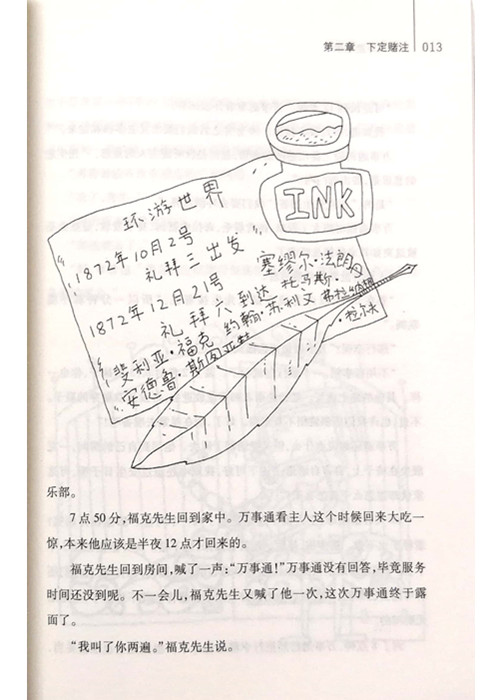 第二章 下定赌注 013
INK
环游世界
1872年10月2号
礼拜三出发
1872年12月21号
礼拜六到达
塞缪尔·法朗
托马斯·
约翰·苏利文
弗拉纳冈
·拉尔夫
斐利亚·福克
安德鲁·斯图亚特
乐部。
7点50分，福克先生回到家中。万事通看主人这个时候回来大吃一
惊，本来他应该是半夜12点才回来的。
福克先生回到房间，喊了一声：“万事通！”万事通没有回答，毕竟服务
时间还没到呢。不一会儿，福克先生又喊了他一次，这次万事通终于露
面了。
“我叫了你两遍。”福克先生说。